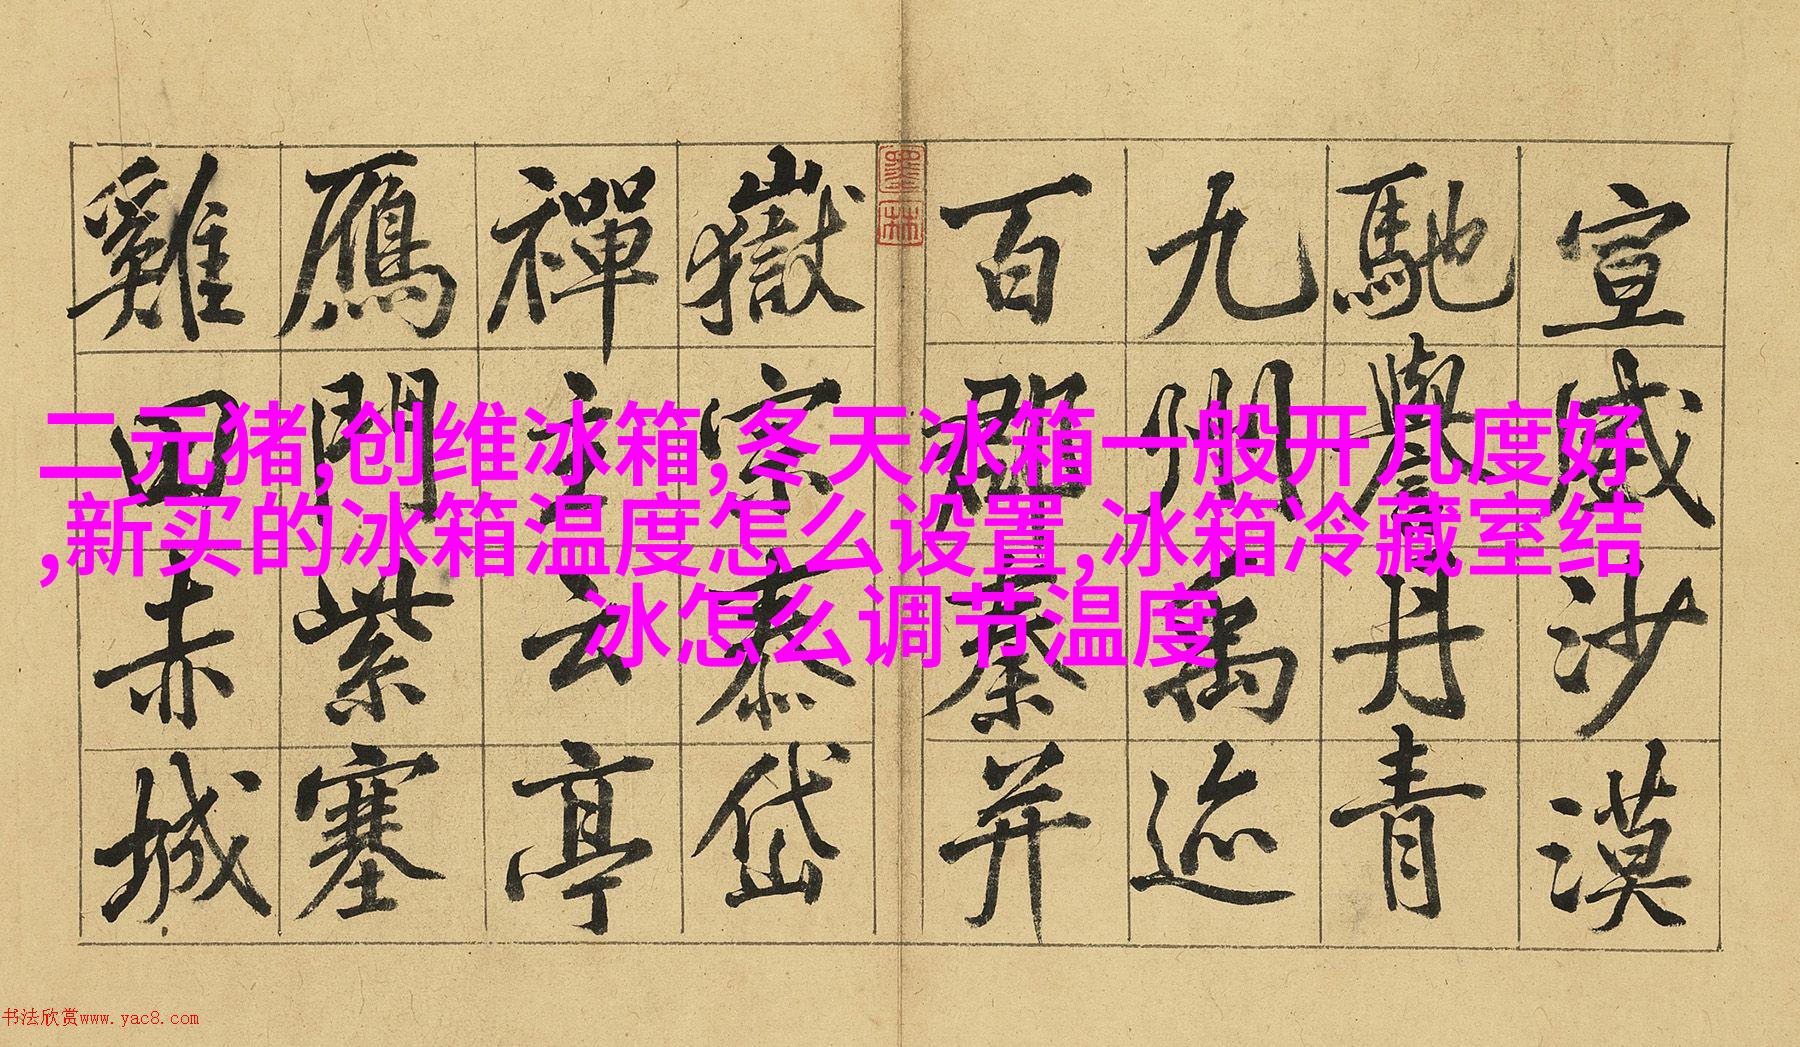 宣威沙漠
馳譽丹青
九州禹迹
百郡秦并
嶽宗泰岱
禪主云亭
鴈門紫塞
雞田赤城
墨林
二元猪,创维冰箱,冬天冰箱一般开几度好
,新买的冰箱温度怎么设置,冰箱冷藏室结
冰怎么调节温度
书法欣赏www.yac8.com